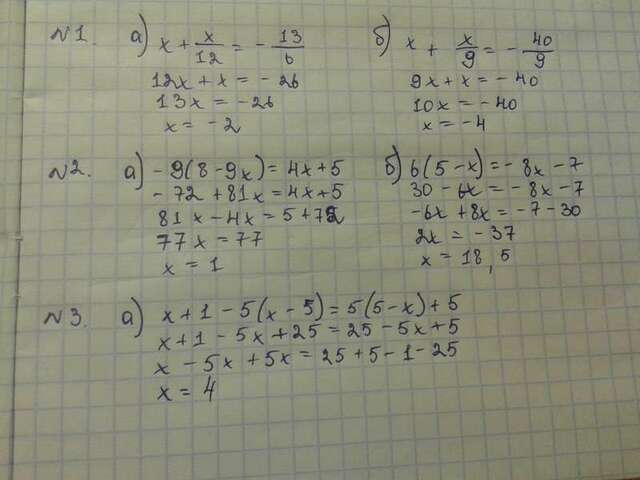 №1. а) x + x/12 = - 13/6
12x + x = - 26
13x = - 26
x = - 2
б) x + x/9 = - 40/9
9x + x = - 40
10x = - 40
x = - 4
№2. а) - 9(8 - 9x) = 4x + 5
- 72 + 81x = 4x + 5
81x - 4x = 5 + 72
77x = 77
x = 1
б) 6(5 - x) = - 8x - 7
30 - 6x = - 8x - 7
-6x + 8x = - 7 - 30
2x = - 37
x = 18,5
№3. а) x + 1 - 5(x - 5) = 5(5 - x) + 5
x + 1 - 5x + 25 = 25 - 5x + 5
x - 5x + 5x = 25 + 5 - 1 - 25
x = 4